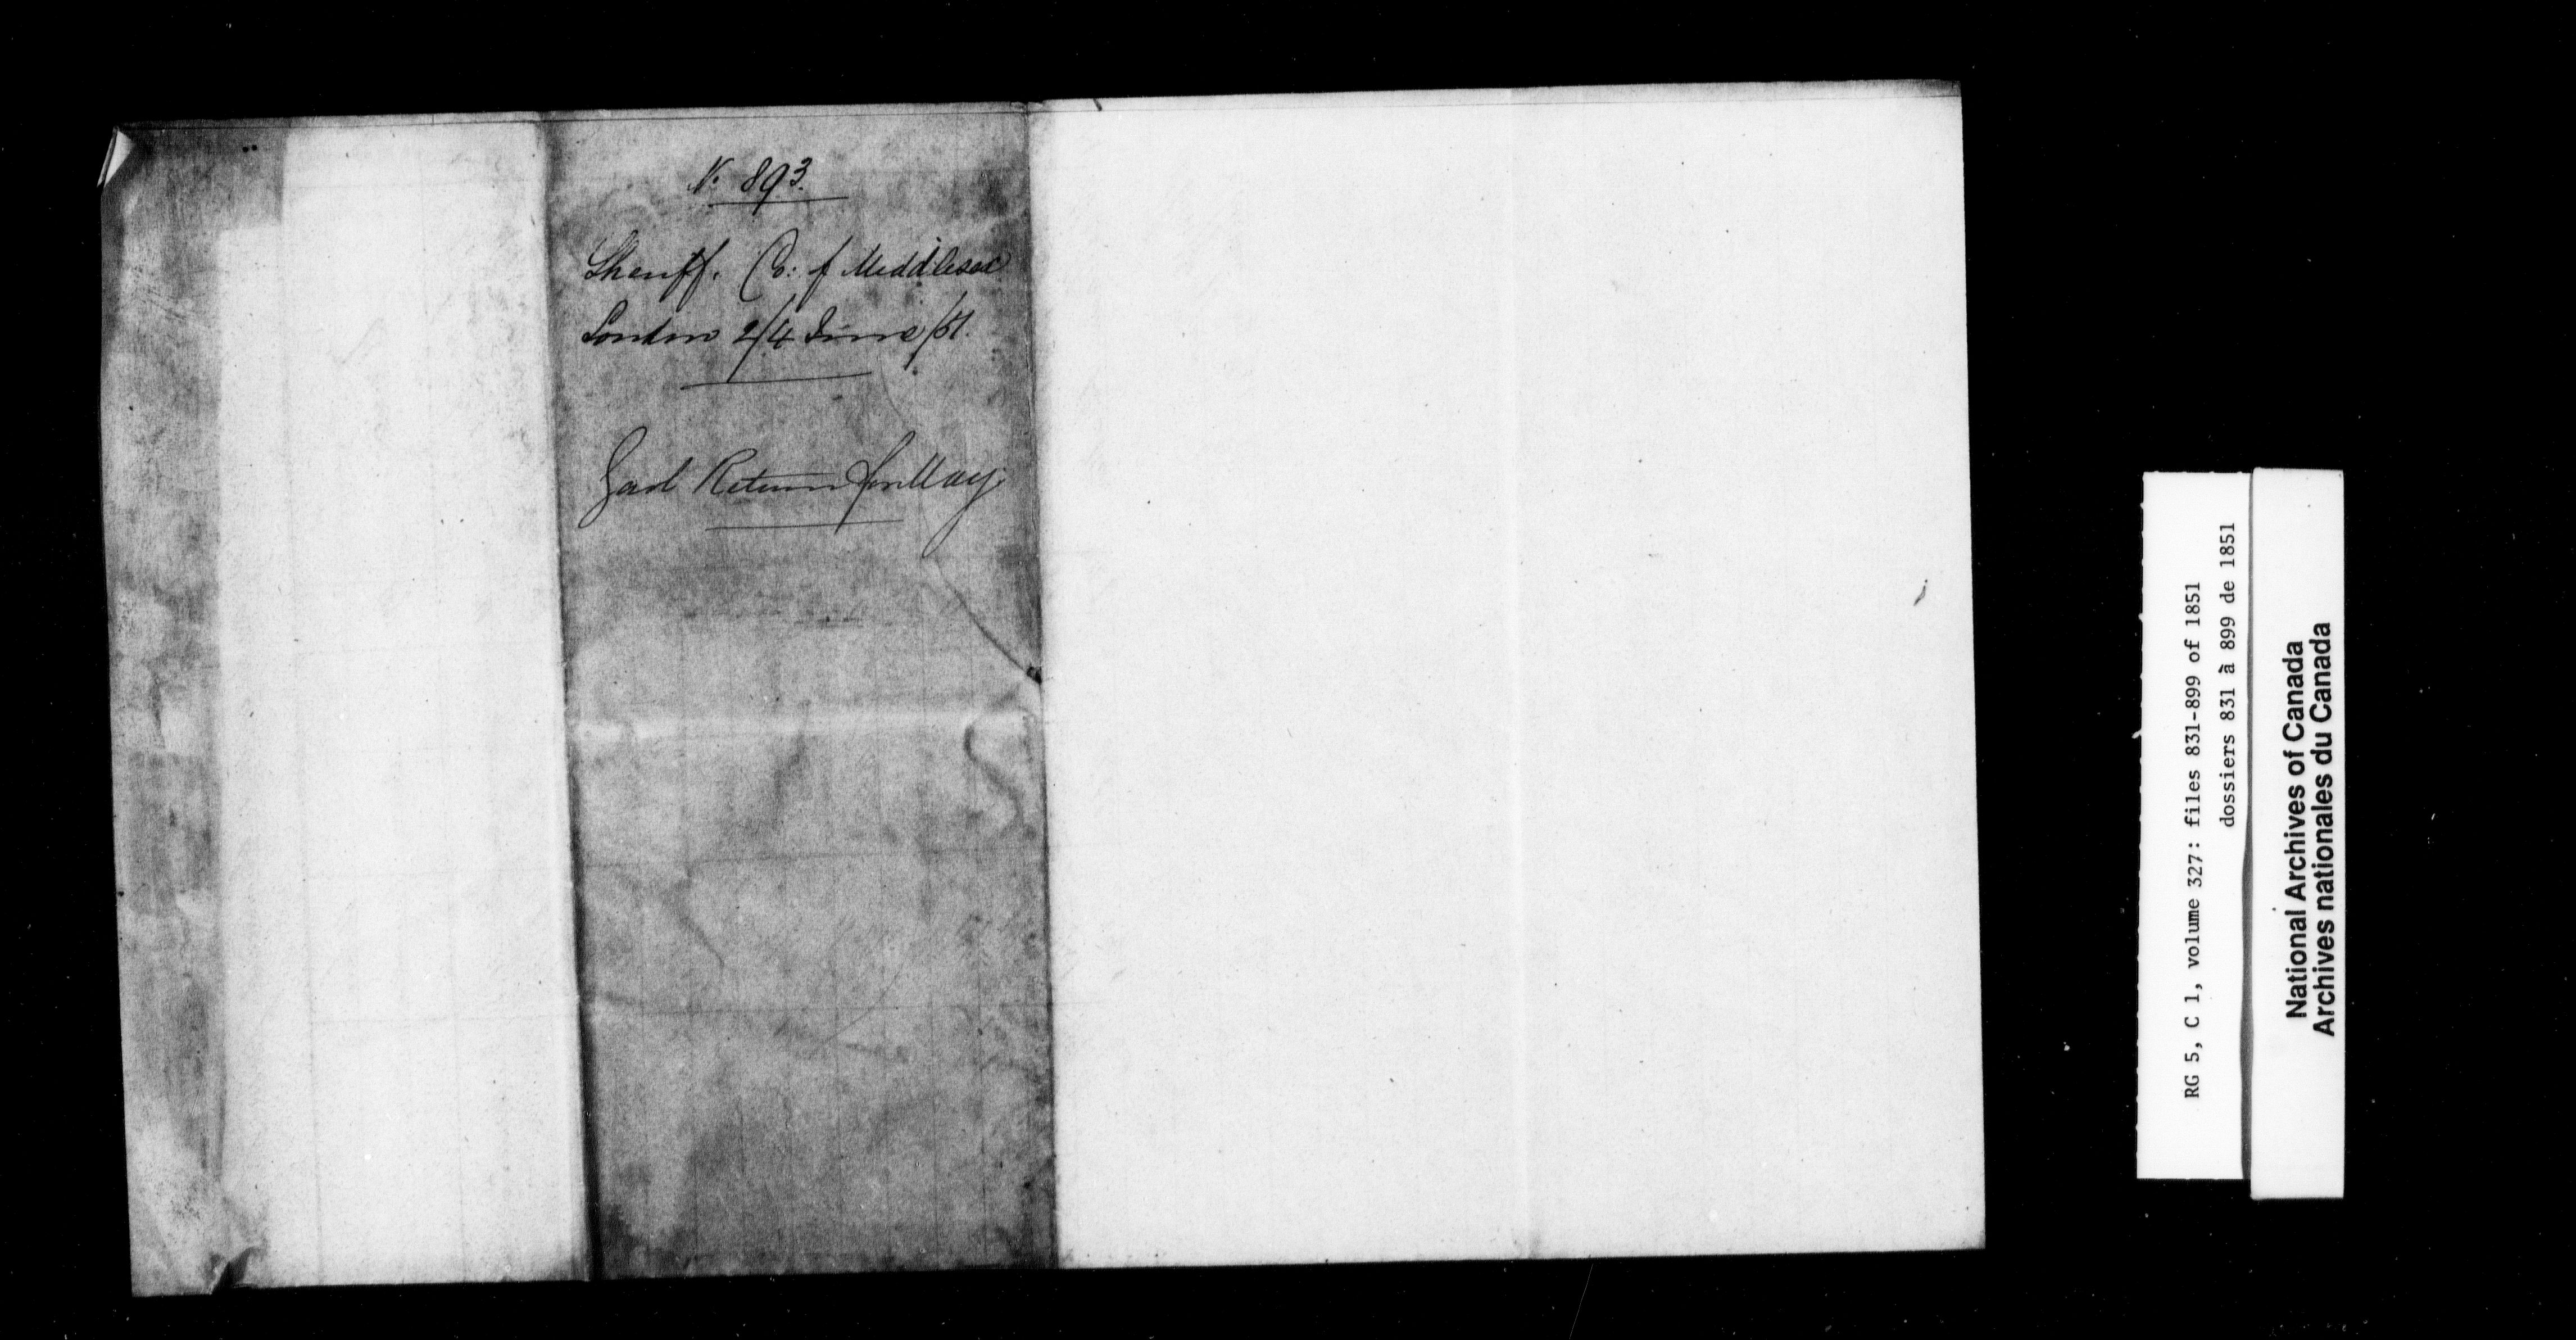 N. 893.
Sheriff. Co: of Middlesex
London 2/4 June/51.
Gaol Return for May.
RG 5, C 1, volume 327: files 831-899 of 1851
dossiers 831 à 899 de 1851
National Archives of Canada
Archives nationales du Canada